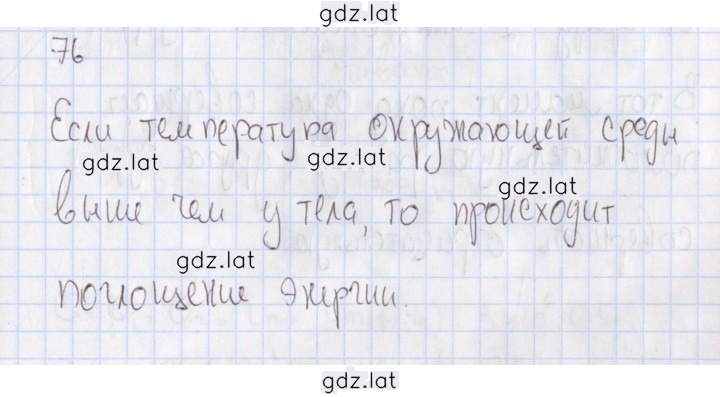 gdz.lat
76
Если температура окружающей среды
gdz.lat gdz.lat
gdz.lat
выше чем у тела, то происходит
gdz.lat
поглощение энергии.
gdz.lat